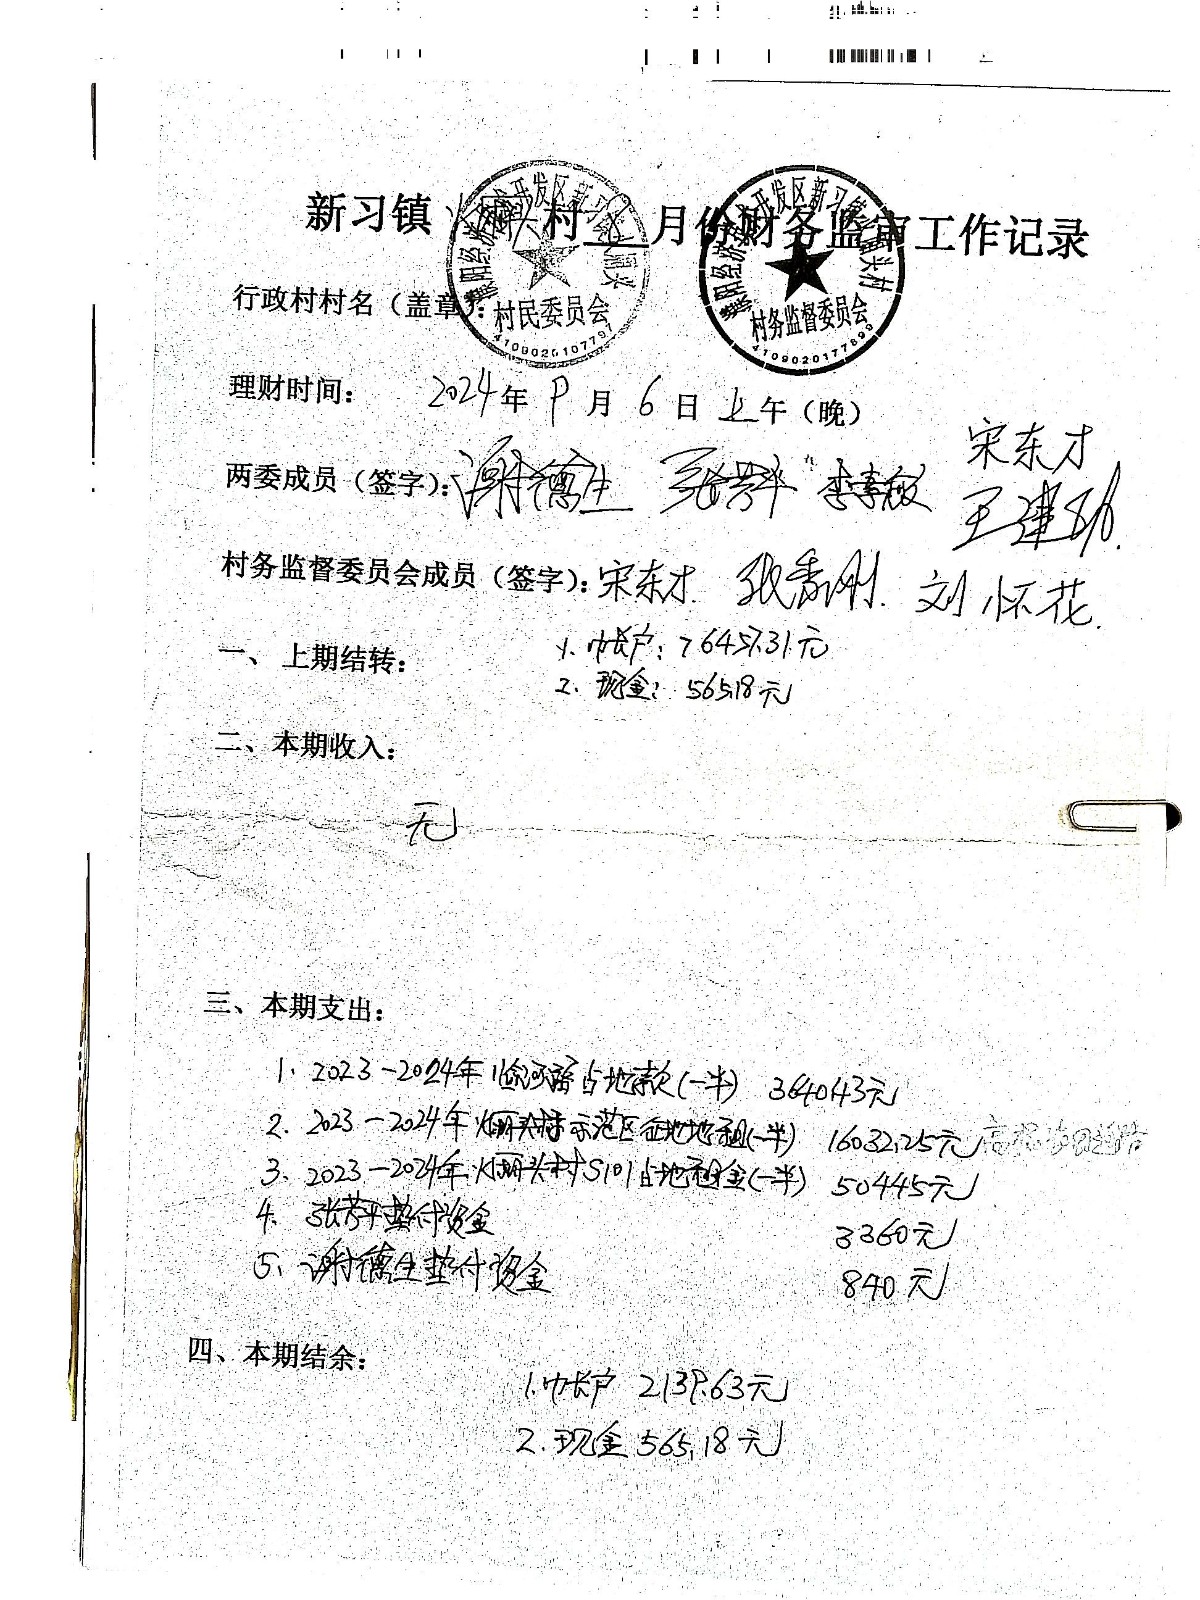 新习镇 村 月份财务监审工作记录
村民委员会
4109020107797
村务监督委员会
4109020177899
行政村村名（盖章）：
理财时间： 2024年 9 月 6 日 上午（晚）
宋东才
两委成员（签字）： 谢德生 张芳平 李素敏 王建
村务监督委员会成员（签字）： 宋东才. 张香刚. 刘怀花.
一、 上期结转： 1. 帐户： 76457.31元
2. 现金： 565.18元
二、本期收入：
无
三、本期支出：
1. 2023-2024年 占地款(一半) 3640.43元
2. 2023-2024年 头村示范区征地地租(一半) 16032.25元
3. 2023-2024年 头村S101占地租金(一半) 50445元
4. 张芳平垫付资金 3360元
5、谢德生垫付资金 840元
四、本期结余：
1. 帐户 2139.63元
2. 现金 565.18元